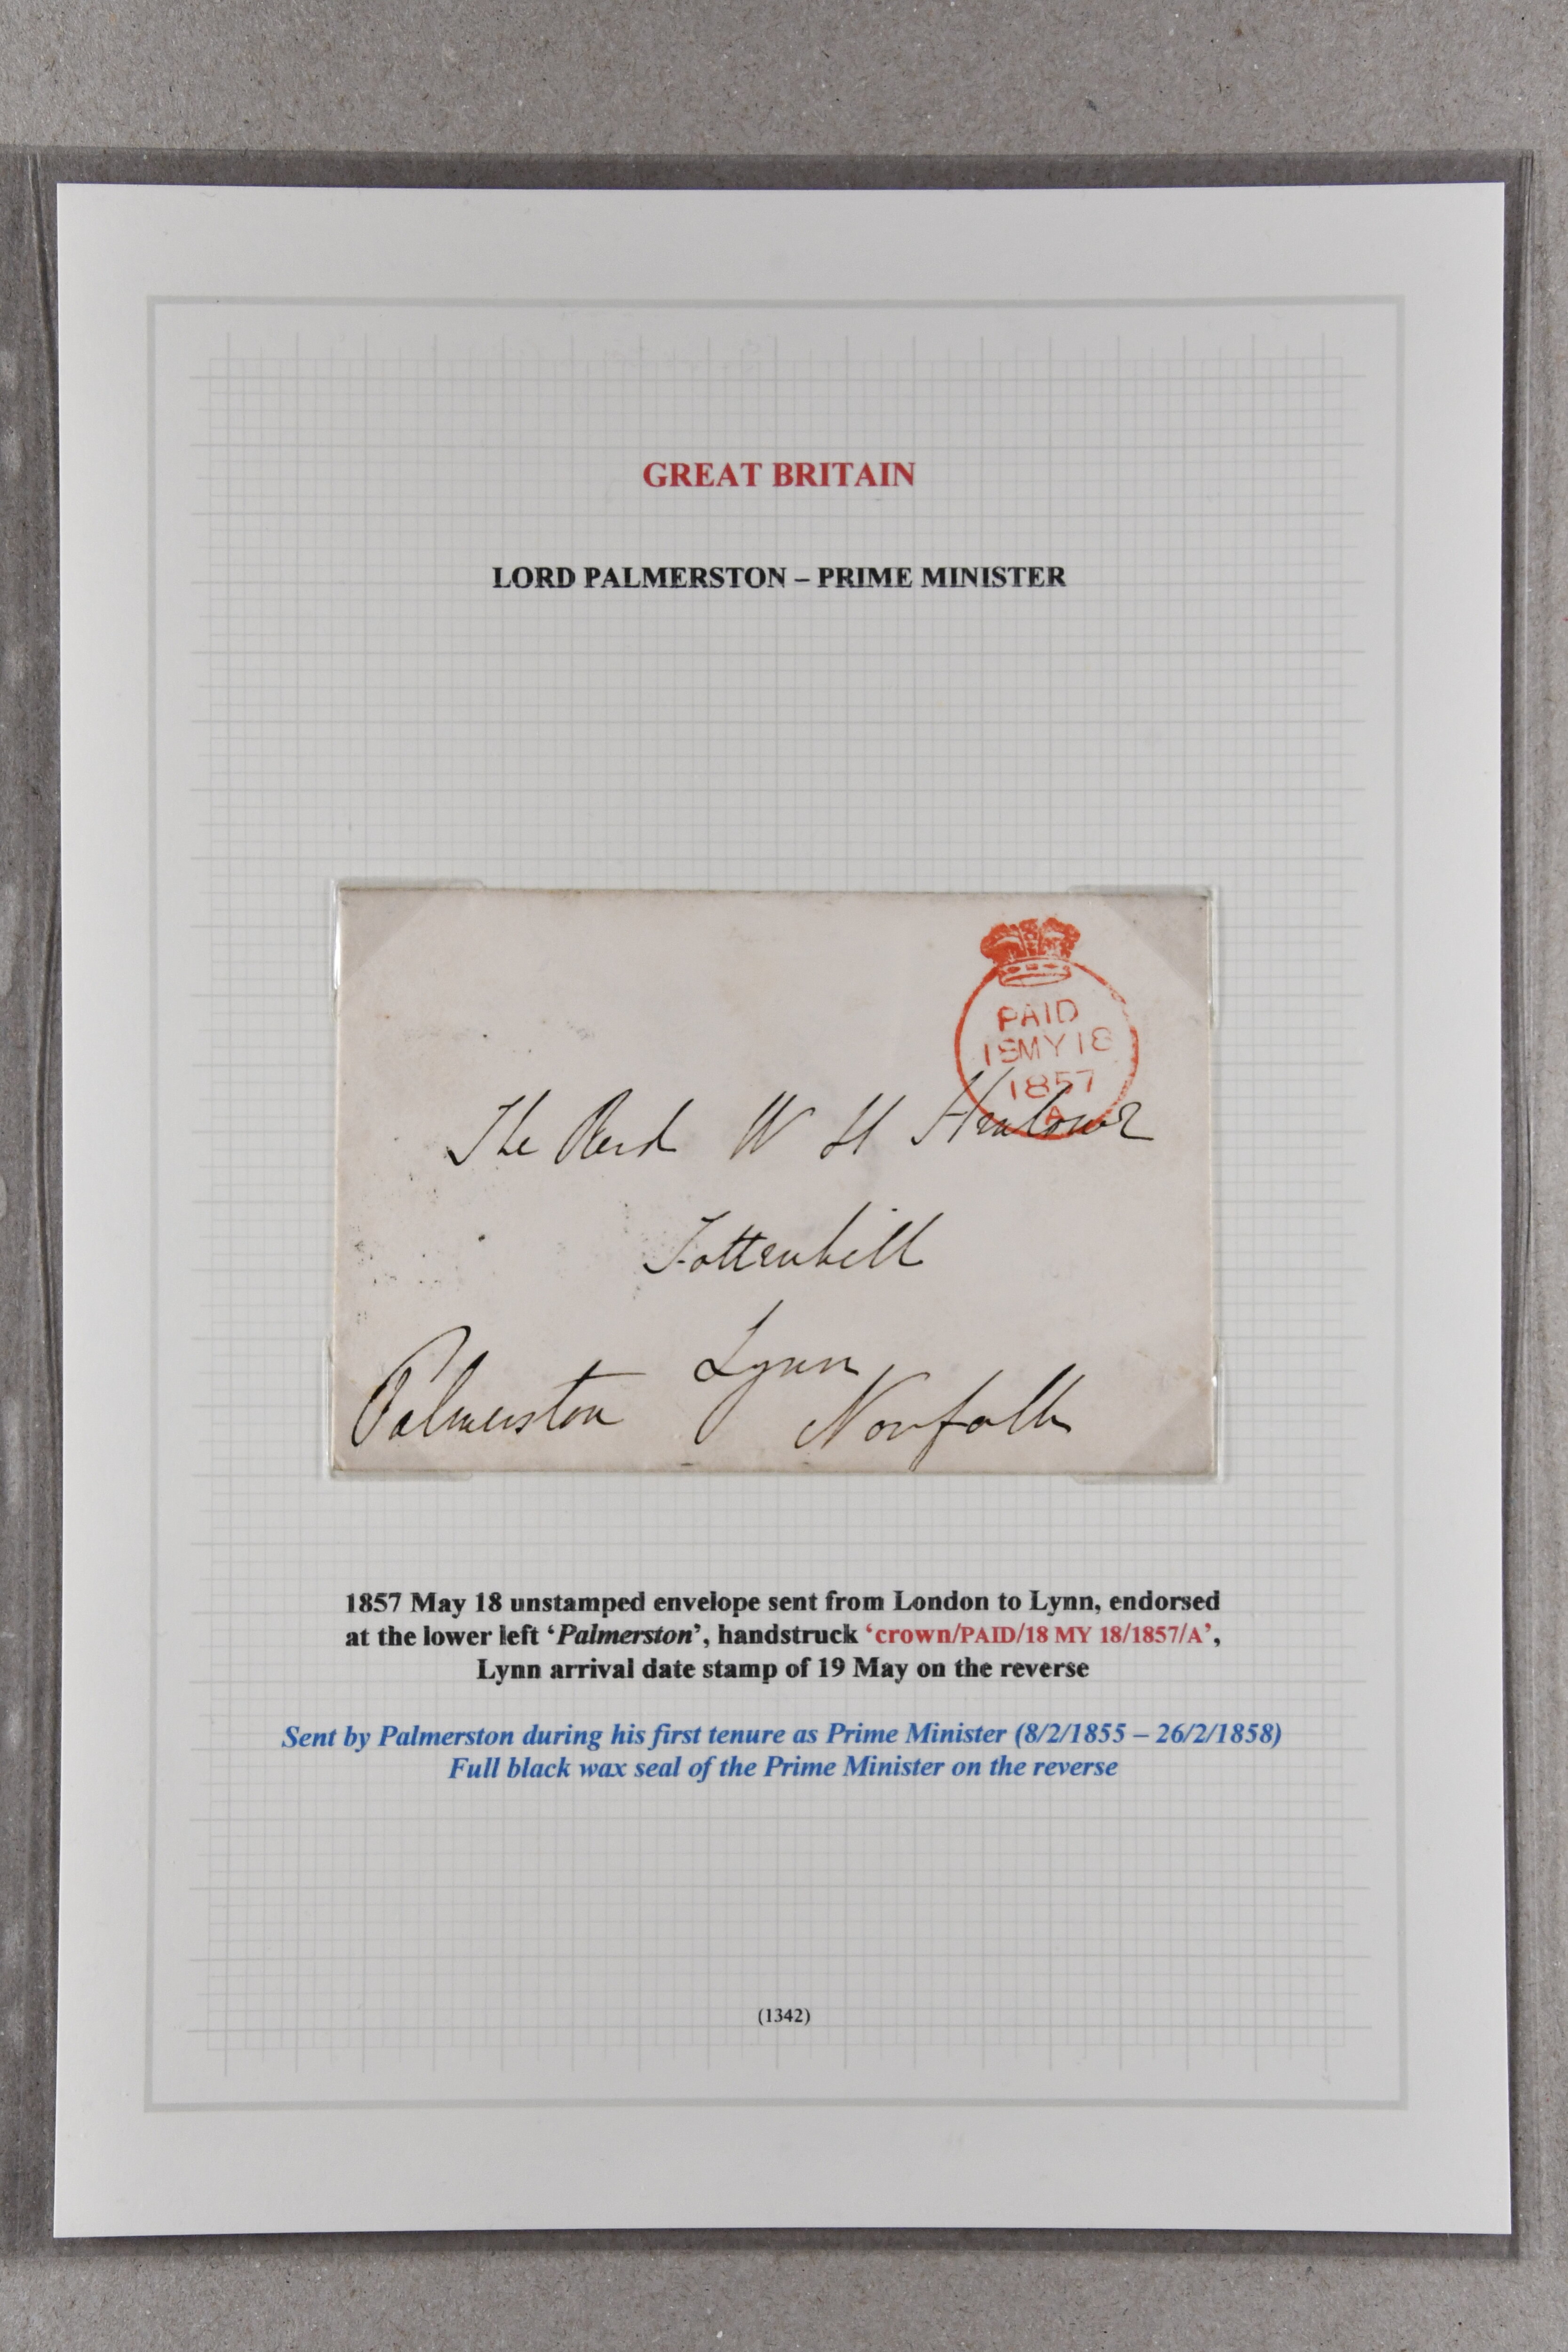 GREAT BRITAIN
LORD PALMERSTON – PRIME MINISTER
PAID
18MY18
1857
A
The Revd W H
Tottenhill
Lynn
Palmerston Norfolk
1857 May 18 unstamped envelope sent from London to Lynn, endorsed
at the lower left ‘Palmerston’, handstruck ‘crown/PAID/18 MY 18/1857/A’,
Lynn arrival date stamp of 19 May on the reverse
Sent by Palmerston during his first tenure as Prime Minister (8/2/1855 – 26/2/1858)
Full black wax seal of the Prime Minister on the reverse
(1342)